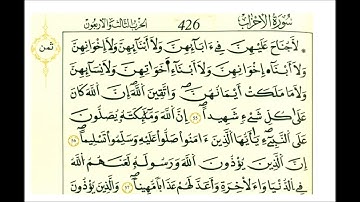 سُورَةُ الْأَحْزَابِ 426 الحزب الثالث والأربعون
ثمن
لَّا جُنَاحَ عَلَيْهِنَّ فِےٓ ءَابَآئِهِنَّ وَلَآ أَبْنَآئِهِنَّ وَلَآ إِخْوَٰنِهِنَّ
وَلَآ أَبْنَآءِ إِخْوَٰنِهِنَّ وَلَآ أَبْنَآءِ أَخَوَٰتِهِنَّ وَلَا نِسَآئِهِنَّ
وَلَا مَا مَلَكَتْ أَيْمَٰنُهُنَّ وَاتَّقِينَ اَللَّهَ إِنَّ اَللَّهَ كَانَ
عَلَىٰ كُلِّ شَےْءٍ شَهِيدًا إِنَّ اَللَّهَ وَمَلَٰٓئِكَتَهُۥ يُصَلُّونَ
عَلَى اَلنَّبِےٓءِ يَٰٓأَيُّهَا اَلذِينَ ءَامَنُوا صَلُّوا عَلَيْهِ وَسَلِّمُوا تَسْلِيمًا
إِنَّ اَلذِينَ يُوذُونَ اَللَّهَ وَرَسُولَهُۥ لَعَنَهُمُ اُللَّهُ
فِے اِلدُّنْيَا وَالَاخِرَةِ وَأَعَدَّ لَهُمْ عَذَابًا مُّهِينًا وَالذِينَ يُوذُونَ